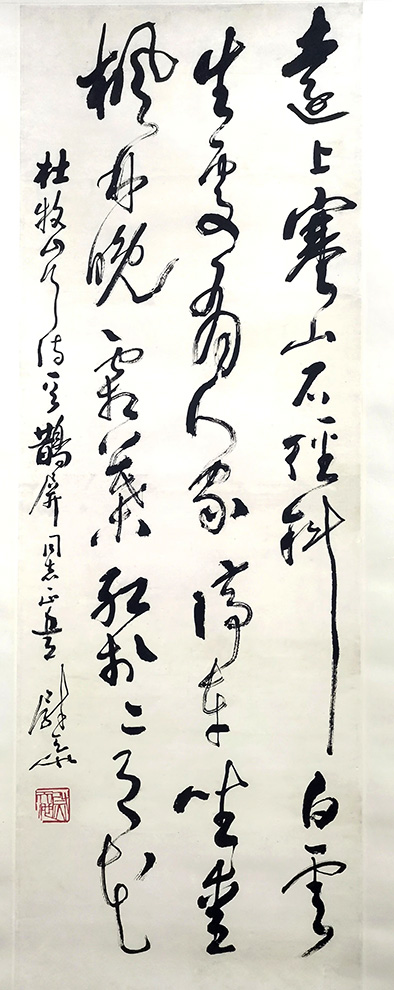 遠上寒山石徑斜白雲
生處有人家停車坐愛
楓林晚霜葉紅於二月花
杜牧山行詩鵲屏同志正